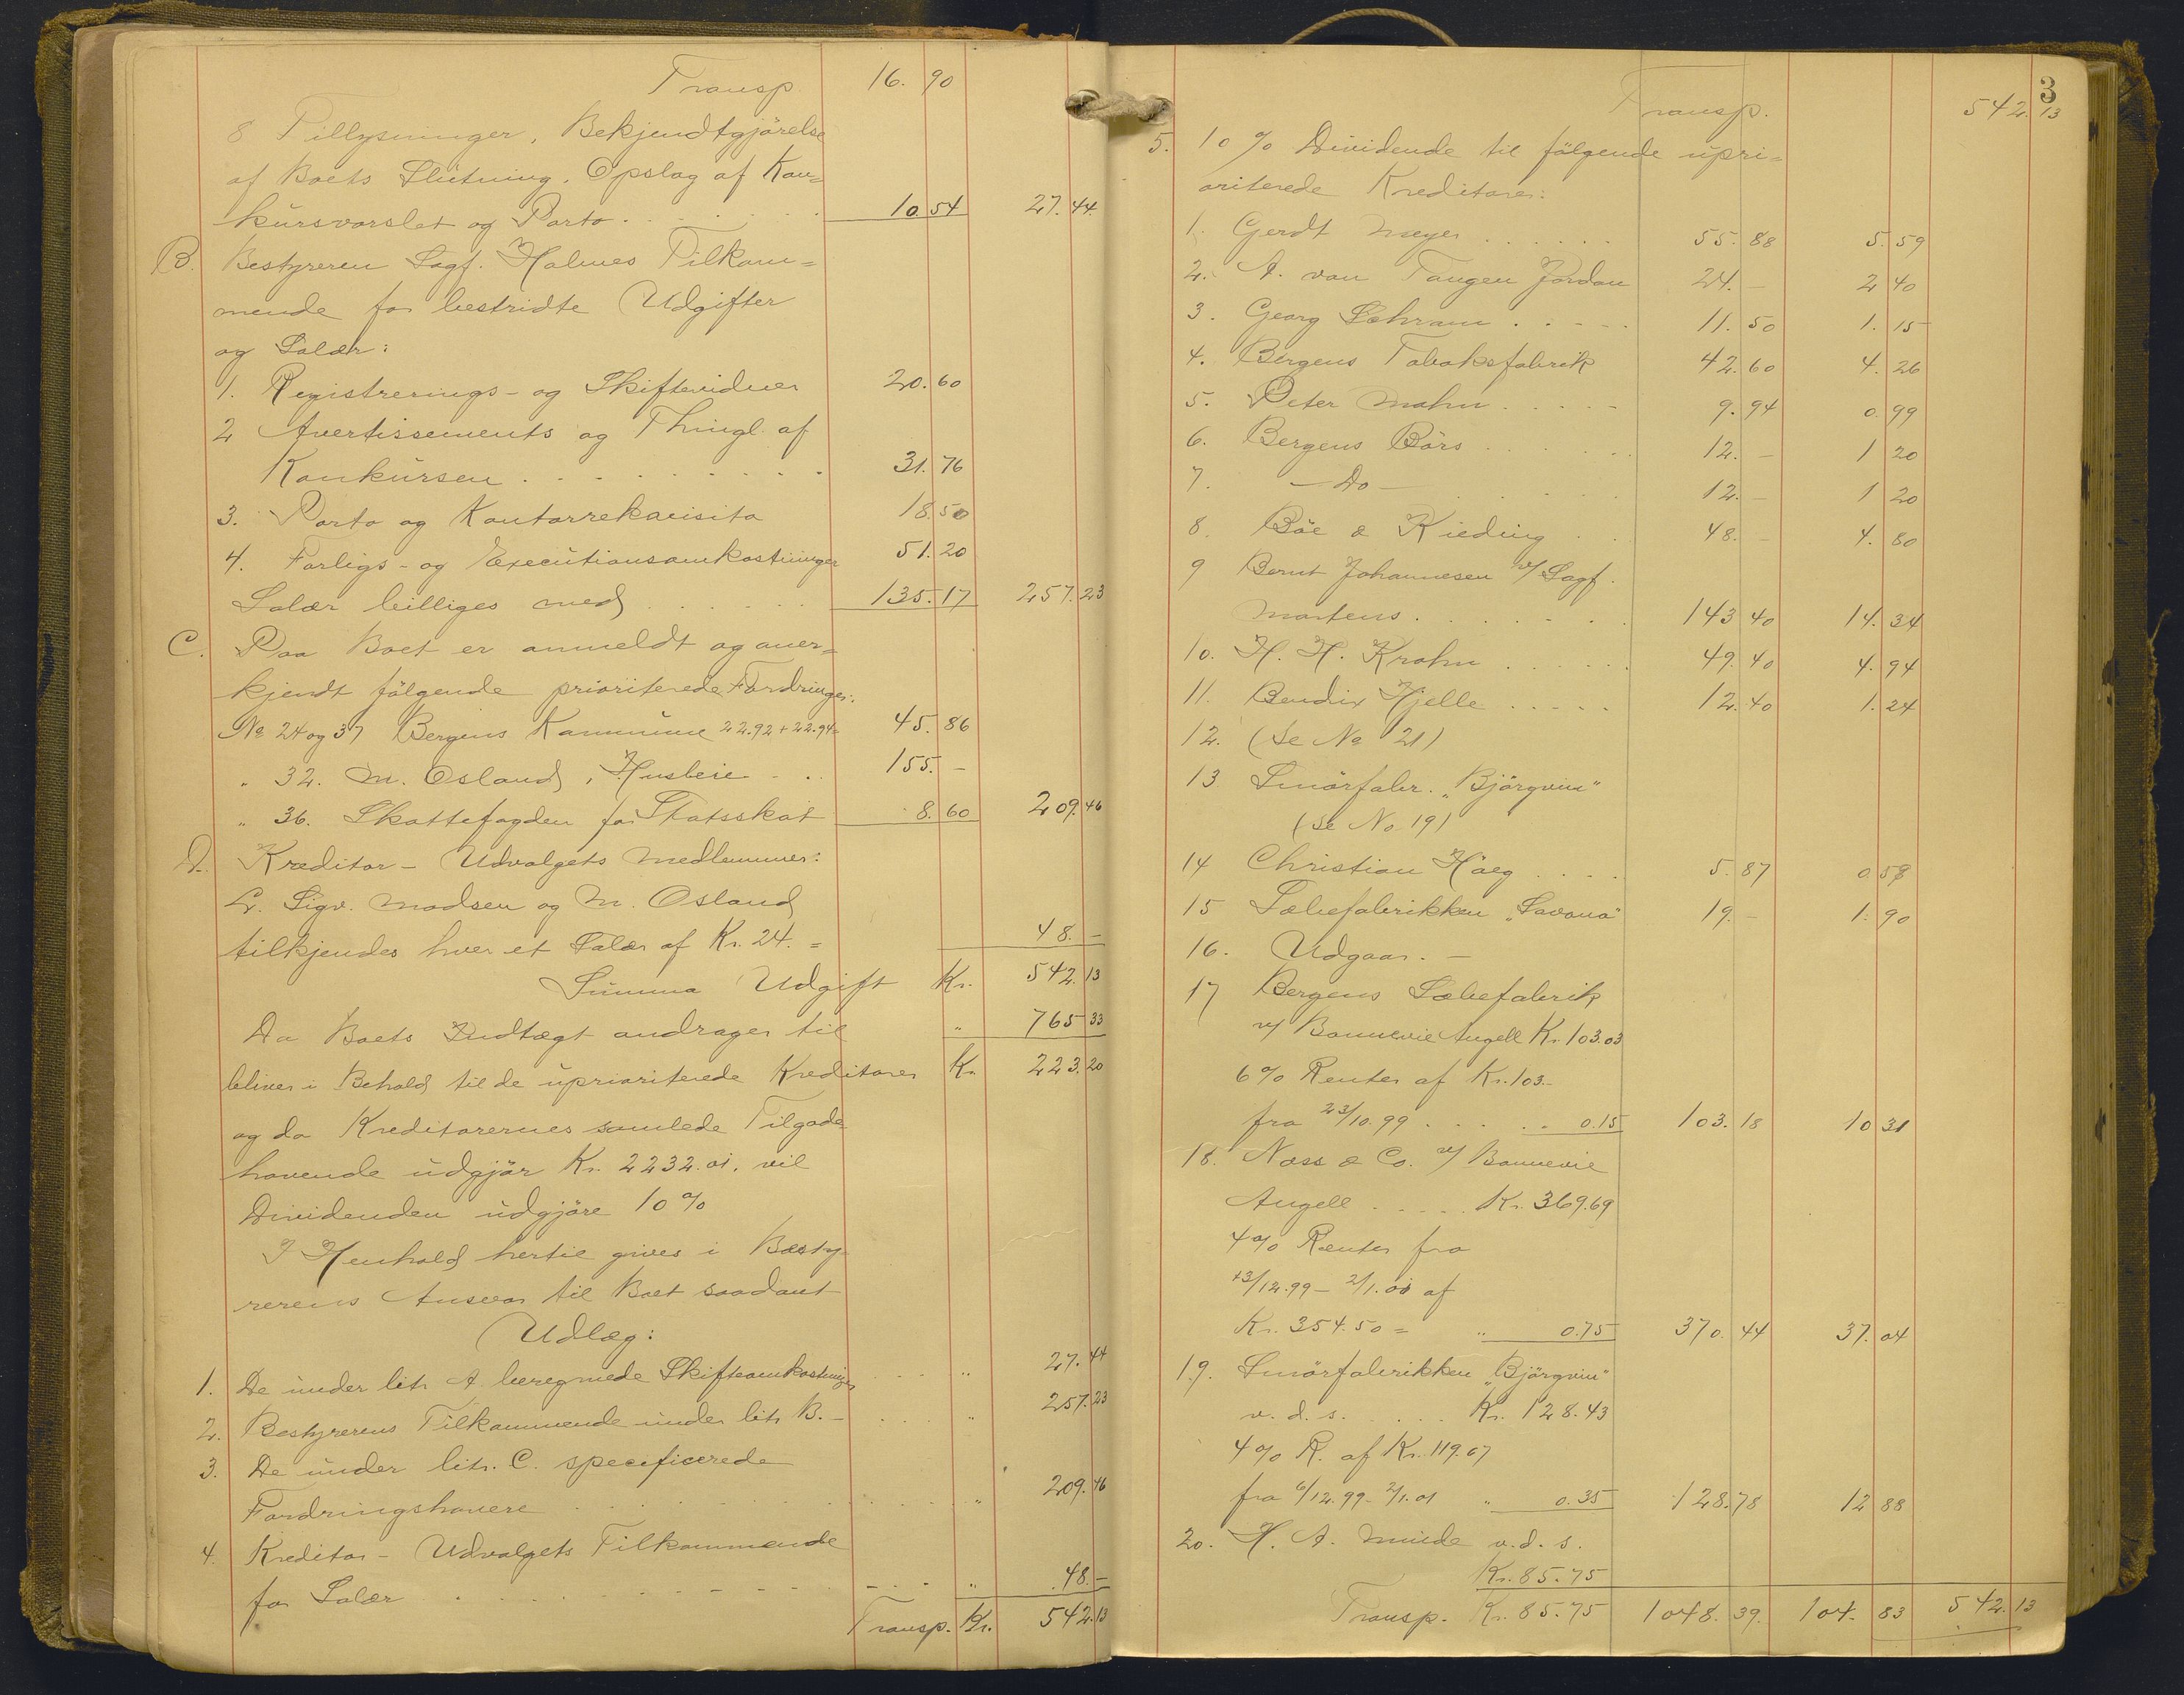 Transp 16. 90
8 Tillysninger, Bekjendtgjörelse
af Boets Slutning, Opslag af Kon=
kursvarslet og Porto . . . . . . 10 54 27. 44.
B. Bestyreren Sagf. Holmes Tilkom=
mende for bestridte Udgifter
og Salær:
1. Registrerings- og Skiftevidner 20. 60
2 Avertissements og Thingl. af
Konkursen . . . . . . . . . 31. 76
3. Porto og Kontorrekvisita 18. 50
4. Forligs- og Executionsomkostninger 51. 20
Salær billiges med . . . . . . 135. 17 257. 23
C. Paa Boet er anmeldt og aner=
kjendt fölgende prioriterede Fordringer:
No 24 og 37 Bergens Kommune 22.92 + 22.94= 45. 86
" 32. M. Osland, Husleie . . . 155. –
" 36. Skattefogden for Statsskat 8. 60 209. 46
D. Kreditor-Udvalgets Medlemmer:
L. Sigv. Madsen og M. Osland
tilkjendes hver et Salær af Kr. 24.= 48. –
Summa Udgift Kr. 542. 13
Da Boets Indtægt andrager til " 765 33
bliver i Behold til de uprioriterede Kreditorer Kr. 223. 20
og da Kreditorernes samlede Tilgode
havende udgjör Kr. 2232.01. vil
Dividenden udgjöre 10 %
I Henhold hertil gives i Besty-
rerens Ansvar til Boet saadant
Udlæg:
1. De under litr A. beregnede Skifteomkostninger . . . " 27. 44
2. Bestyrerens Tilkommende under litr B. – . . . " 257. 23
3. De under litr. C. specificerede
Fordringshavere . . . . . . . . " 209. 46
4. Kreditor-Udvalgets Tilkommende
for Salær . . . . . . . . . " 48. –
Transp. Kr. 542. 13
3
Transp. 542. 13
5. 10 % Dividende til fölgende upri=
oriterede Kreditorer:
1. Gerdt Meyer . . . . . . 55. 88 5. 59
2. A. von Tangen Jordan 24. – 2 40
3. Georg Schram . . . . . 11. 50 1. 15
4. Bergens Tobaksfabrik 42. 60 4. 26
5. Peter Mohn . . . . . 9. 94 0. 99
6. Bergens Börs . . . . . . 12. – 1 20
7. – Do – . . . . . 12. – 1 20
8. Böe & Kieding . . 48. – 4. 80
9 Bernt Johannesen v/ Sagf.
Martens . . . . . . . . 143 40 14. 34
10. H. H. Krohn . . . . . . 49. 40 4. 94
11. Bendix Hjelle . . . . . 12. 40 1. 24
12. (Se No 21)
13 Smörfabr. „Björgvin"
(Se No 19)
14 Christian Häeg . . . . 5. 87 0. 58
15 Sæbefabrikken „Savona" 19. – 1. 90
16. Udgaar. –
17 Bergens Sæbefabrik
v/ Bonnevie Angell Kr. 103.03
6 % Renter af Kr. 103.–
fra 23/10.99 . . . . . 0.15 103. 18 10 31
18. Næss & Co. v/ Bonnevie
Angell . . . . . Kr. 369.69
4 % Renter fra
13/12.99 – 2/1.01 af
Kr. 354.50 = " 0.75 370. 44 37. 04
19. Smörfabrikken „Björgvin"
v. d. s. . . . . Kr. 128.43
4 % R. af Kr. 119.67
fra 6/12.99 – 2/1.01 " 0.35 128. 78 12 88
20. H. A. Minde v. d. s.
Kr. 85.75
Transp. Kr. 85.75 1048. 39. 104. 83 542. 13